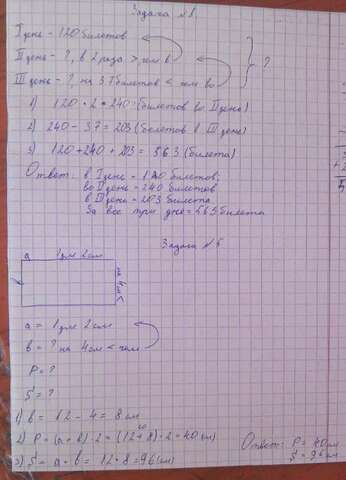 Задача №1.
I день - 120 билетов
II день - ?, в 2 раза >, чем в
III день - ?, на 37 билетов < чем во
?
1) 120 · 2 = 240 (билетов во II день)
2) 240 - 37 = 203 (билетов в III день)
3) 120 + 240 + 203 = 563 (билета)
Ответ: в I день - 120 билетов;
во II день - 240 билетов
в III день - 203 билета
За все три дня = 563 билета
Задача №5
a 1 дм 2 см
на 4 см <
a = 1 дм 2 см
в = ? на 4 см < чем
P = ?
S = ?
1) в = 12 - 4 = 8 см
2) P = (a + в) · 2 = (12 + 8) · 2 = 40 (см)
20
3) S = a · в = 12 · 8 = 96 (см)
Ответ: P = 40 см
S = 96 см